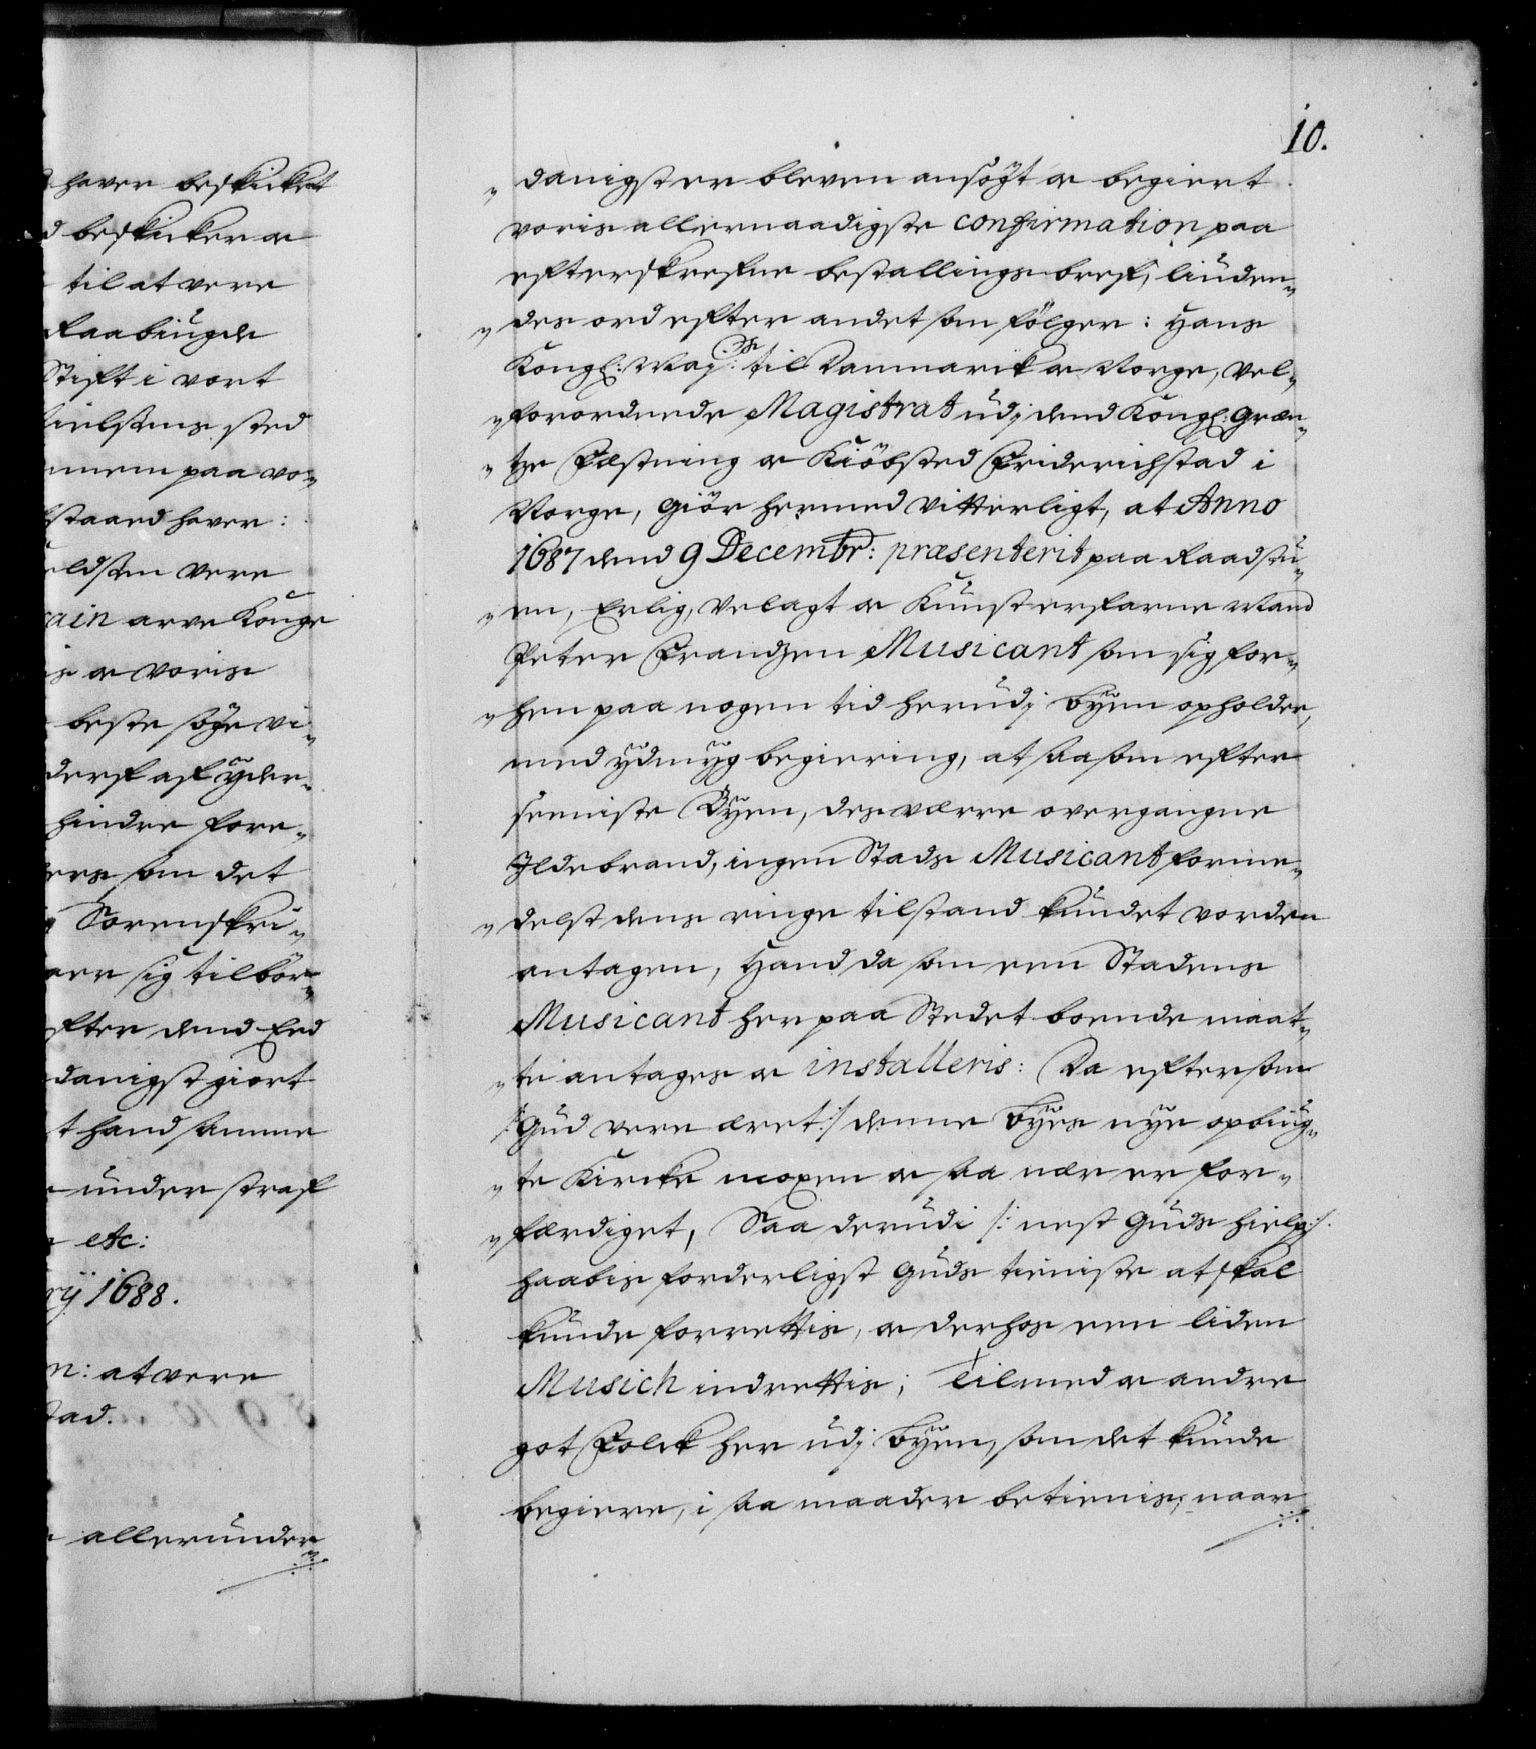 haver beskicket
d beskicker oc
til at vere
Raabiugde
Stift i vort
ielssens sted
mmem paa vo„
staaed haver:
eldsten vere
ain arve Konge
is oc voris
beste söge vi„
derf af yder„
hindre fore„
ers som det
Sorenskri„
aer sig tilbör„
fter dend Eed
danigst giort
t hand samme
under straf
etc:
ry 1688.
n: at vere
tad.
allerunder„
10.
„danigst er bleven ansögt oc begiert
voris allernaadigste confirmation paa
efterskrefne bestallings bref, liuden„
„des ord efter andet som fölger: Hans
Kongl: Maj:ts til Danmarck oc Norge, Vel„
„forordnede Magistrat udj dend Kongl: Græn„
„tze Fæstning oc Kiöbsted Friderichstad i
Norge, Giör hermed Vitterligt, at Anno
1687 dend 9 Decembr: præsenterit paa Raadstu„
„en, Erlig, Velagt oc Kunst erfarne Mand
Peter Frandzen Musicant som sig for„
„hen paa nogen tid herudj Byen opholder,
med ydmyg begiering, at saasom efter
seeniste Byen, des værre overgangne
Ildebrand, ingen Stads Musicant forme„
„delst dens ringe tilstand kundet vorden
antagen, Hand da som een Stadens
Musicant her paa Stedet boende maat„
„te antages oc installeris: Da eftersom
/: Gud vere æret :/ denne Byes nye opbiug„
„te Kircke moxen oc saa nær er for„
„færdiget, Saa derudi /: nest Guds hielp :/
haabis forderligst Guds tieniste at skal
kunde forrettis, oc derhos een liden
Musich indrettis; Tilmed oc andre
got Folck her udj Byen, som det kunde
begiere, i saa maader betienis; naar